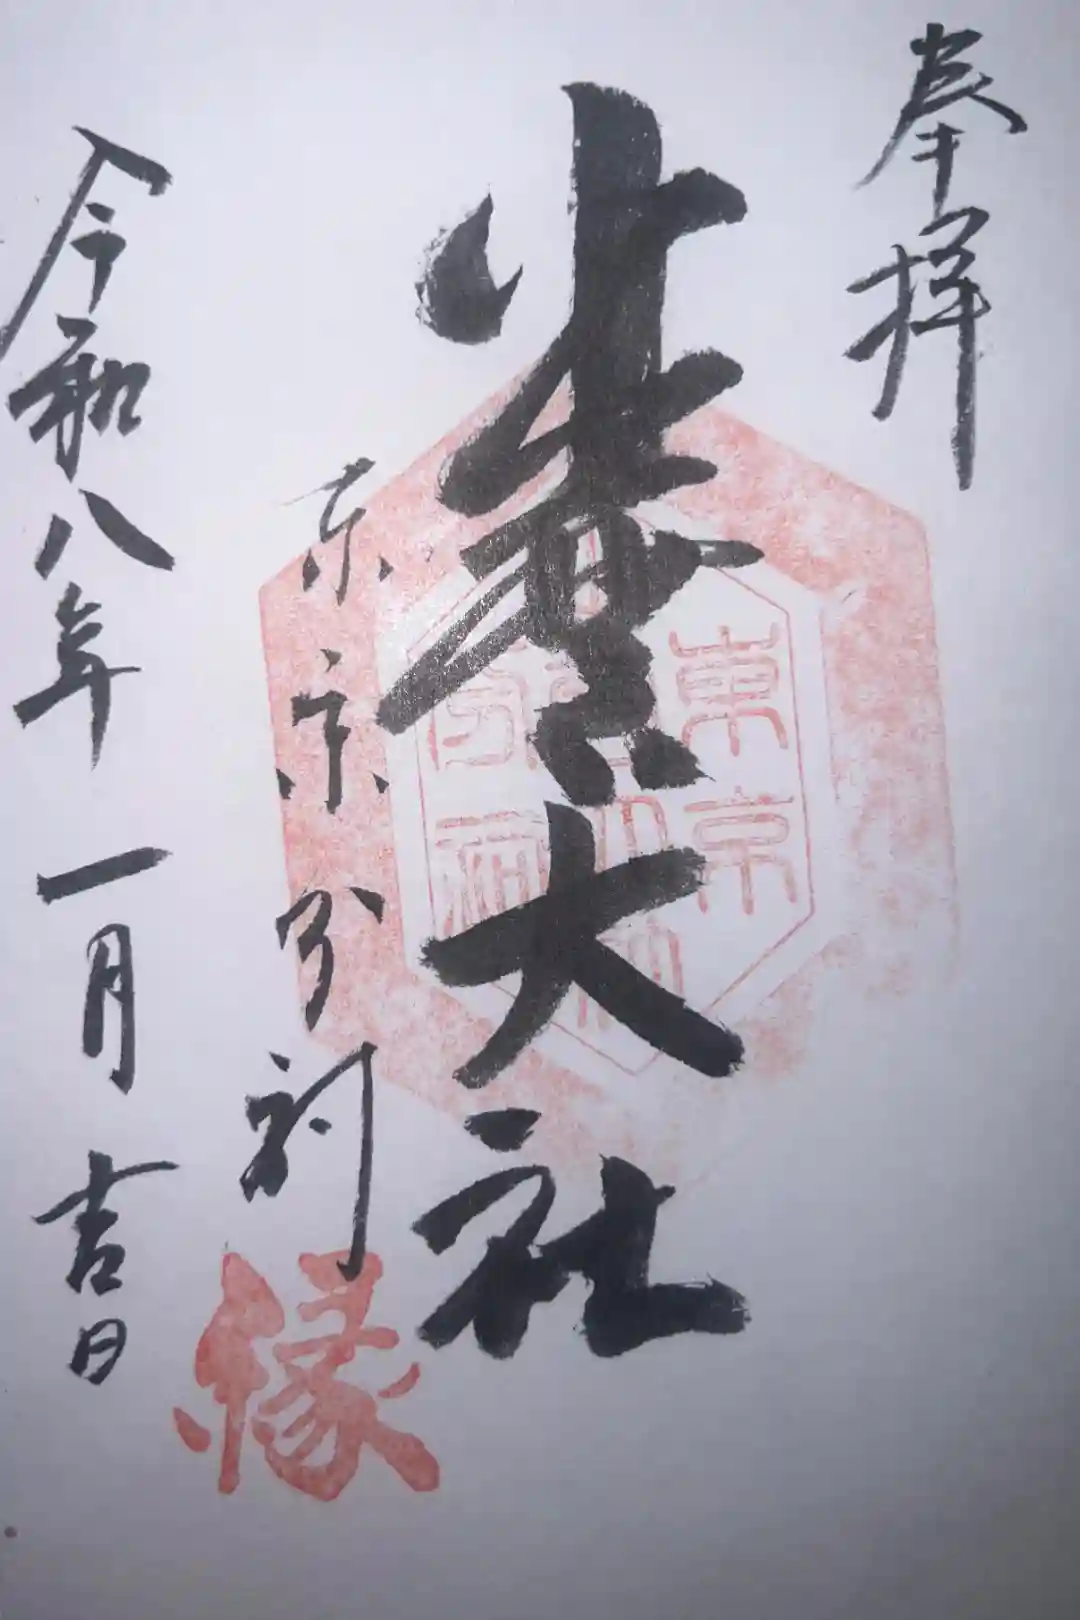 奉拝
出雲大社
東京分祠
令和八年一月吉日
東京
分祠
縁